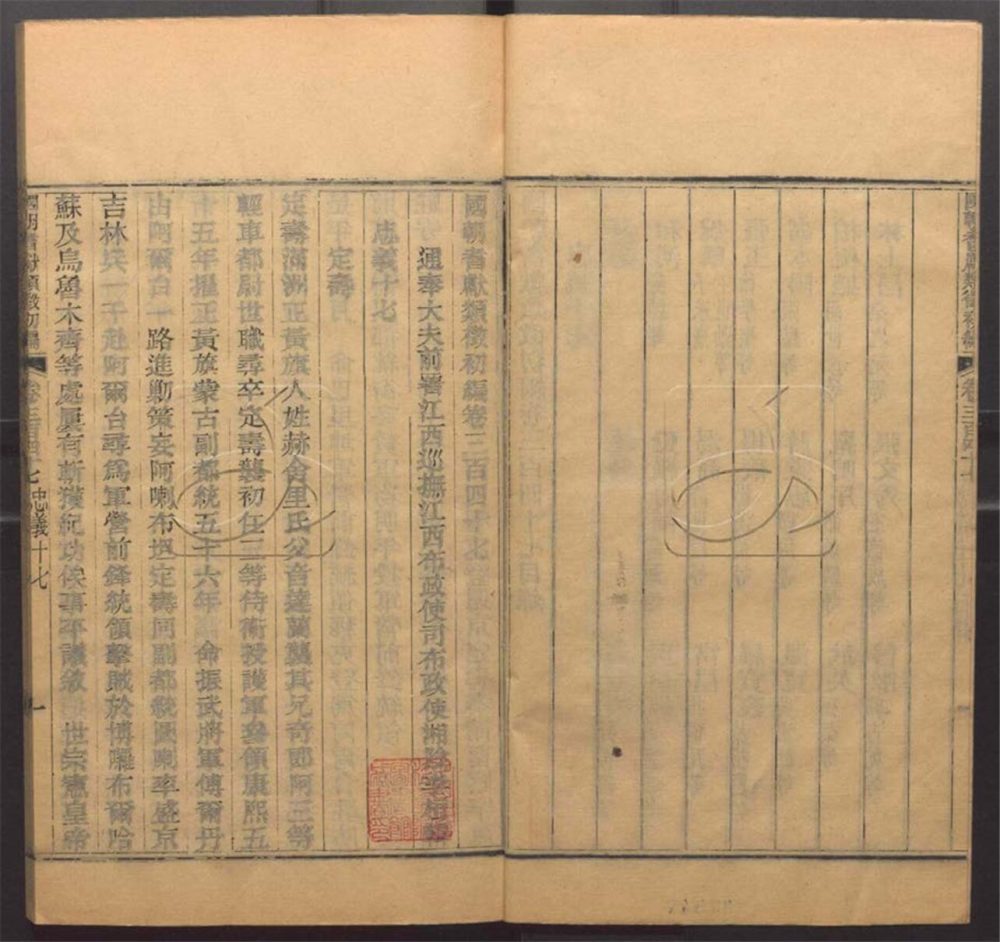 國朝耆獻類徵初編卷三百四十七
通奉大夫前署江西巡撫江西布政使司布政使湘陰李桓輯
忠義十七
定壽
定壽滿洲正黃旗人姓赫舍里氏父音達蘭襲其兄奇郎阿三等
輕車都尉世職尋卒定壽襲初任三等侍衛授護軍參領康熙五
十五年擢正黃旗蒙古副都統五十六年 命振武將軍傅爾丹
由阿爾台一路進勦策妄阿喇布坦定壽同副都統圖喇率盛京
吉林兵一千赴阿爾台尋為軍營前鋒統領擊賊於博囉布爾哈
蘇及烏魯木齊等處屢有斬獲紀功俟事平議敘 世宗憲皇帝
國朝耆獻類徵初編 卷三百四十七 忠義十七 一